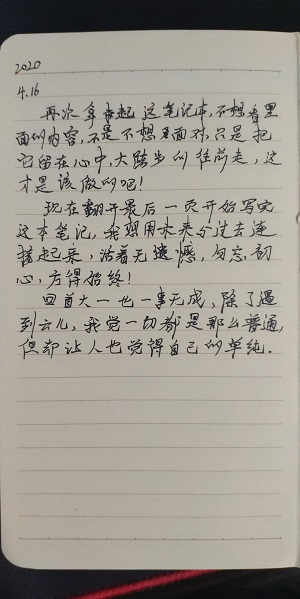 2020
4.16
再次拿起这笔记本,不想看里
面的内容,不是不想面对,只是把
它留在心中大踏步的往前走,这
才是该做的吧!
现在翻开最后一页开始写完
这本笔记,我想用未来与过去连
接起来,活着无遗憾,勿忘初
心,方得始终!
回首大一也一事无成,除了遇
到云儿,我觉一切都是那么普通,
但却让人也觉得自己的单纯.